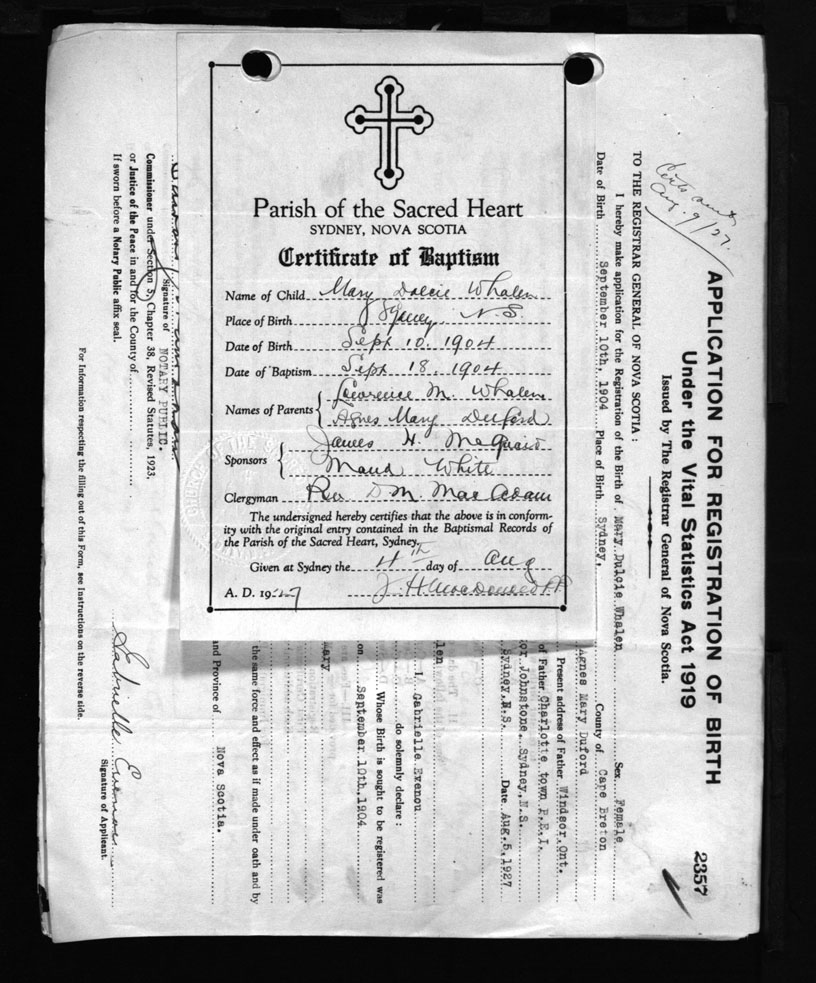 Parish of the Sacred Heart
SYDNEY, NOVA SCOTIA
Certificate of Baptism
Name of Child Mary Dulcie Whalen
Place of Birth Sydney N. S
Date of Birth Sept 10. 1904
Date of Baptism Sept 18. 1904
Names of Parents { Lawrence M. Whalen
Agnes Mary Duford
Sponsors { James H. McQuaid
Maud White
Clergyman Rev D M. MacAdam
The undersigned hereby certifies that the above is in conform-
ity with the original entry contained in the Baptismal Records of
the Parish of the Sacred Heart, Sydney.
Given at Sydney the 4th day of Aug
A. D. 1927 J. H. MacDonald P.P.
Aug. 9/27.
APPLICATION FOR REGISTRATION OF BIRTH
2357
Under the Vital Statistics Act 1919
Issued by The Registrar General of Nova Scotia.
TO THE REGISTRAR GENERAL OF NOVA SCOTIA:
I hereby make application for the Registration of the Birth of Mary Dulcie Whalen Sex Female
Date of Birth September 10th, 1904 Place of Birth Sydney, County of Cape Breton
Agnes Mary Duford
Present address of Father Windsor, Ont.
of Father Charlotte town P.E.I.
tor Johnstone, Sydney, N.S.
Sydney, N.S. Date Aug. 5, 1927
len
I, Gabrielle Evenou
do solemnly declare:
Whose Birth is sought to be registered was
on September 10th, 1904
ary
and Province of Nova Scotia.
the same force and effect as if made under oath and by
Signature of NOTARY PUBLIC.
Commissioner under Section 5, Chapter 38, Revised Statutes, 1923,
or Justice of the Peace in and for the County of
If sworn before a Notary Public affix seal.
Gabrielle Evenou
Signature of Applicant.
For Information respecting the filling out of this Form, see Instructions on the reverse side.